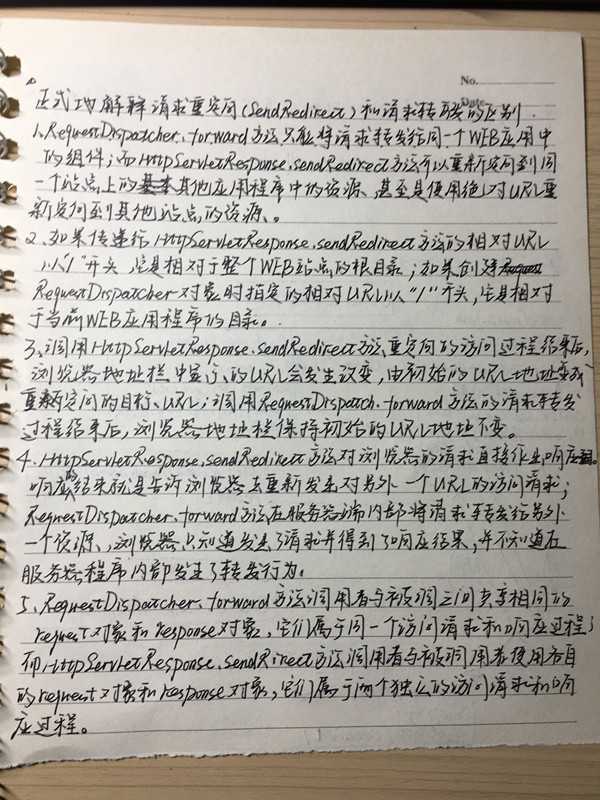 No.
Date
正式地解释请求重定向(SendRedirect)和请求转发的区别.
1、RequestDispatcher.forward方法只能将请求转发给同一个WEB应用中
的组件;而HttpServletResponse.sendRedirect方法可以重新定向到同
一个站点上的其他应用程序中的资源、甚至是使用绝对URL重
新定向到其他站点的资源、。
2、如果传递给HttpServletResponse.sendRedirect方法的相对URL
以"/"开头,它是相对于整个WEB站点的根目录;如果创建
RequestDispatcher对象时指定的相对URL以"/"开头,它是相对
于当前WEB应用程序的目录。
3、调用HttpServletResponse.sendRedirect方法重定向的访问过程结束后,
浏览器地址栏中显示的URL会发生改变,由初始的URL地址变成
重新定向的目标URL;调用RequestDispatch.forward方法的请求转发
过程结束后,浏览器地址栏保持初始的URL地址不变。
4、HttpServletResponse.sendRedirect方法对浏览器的请求直接作出响应
响应的结果就是告诉浏览器去重新发出对另外一个URL的访问请求;
RequestDispatcher.forward方法在服务器端内部将请求转发给另外
一个资源、,浏览器只知道发出了请求并得到了响应结果,并不知道在
服务器程序内部发生了转发行为.
5、RequestDispatcher.forward方法调用者与被调之间共享相同的
request对象和response对象,它们属于同一个访问请求和响应过程;
而HttpServletResponse.sendRirect方法调用者与被调用者使用各自
的request对象和response对象,它们属于两个独立的访问请求和响
应过程。